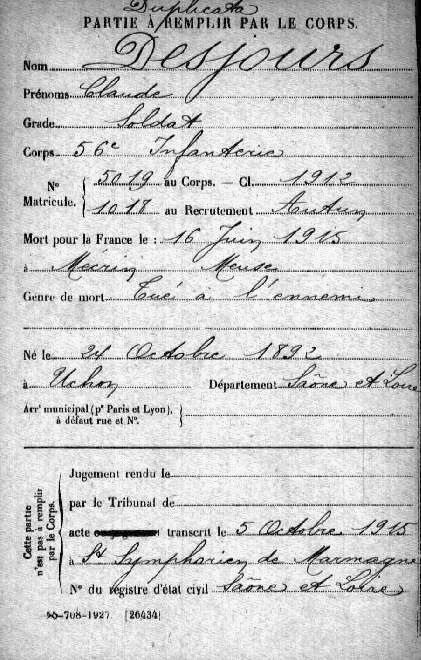 Duplicata
PARTIE À REMPLIR PAR LE CORPS.
Nom Desjours
Prénoms Claude
Grade Soldat
Corps 56e Infanterie
N° Matricule. { 5019 au Corps. — Cl. 1912
1017 au Recrutement Autun
Mort pour la France le : 16 Juin 1915
à Meuse
Genre de mort Tué à l'ennemi
Né le 24 Octobre 1892
à Uchon Département Saône et Loire
Arrt municipal (pr Paris et Lyon), à défaut rue et N°.
Cette partie n'est pas à remplir par le Corps.
Jugement rendu le
par le Tribunal de
acte transcrit le 5 Octobre 1915
à St Symphorien de Marmagne
N° du registre d'état civil Saône et Loire
-708-1927. [26434]